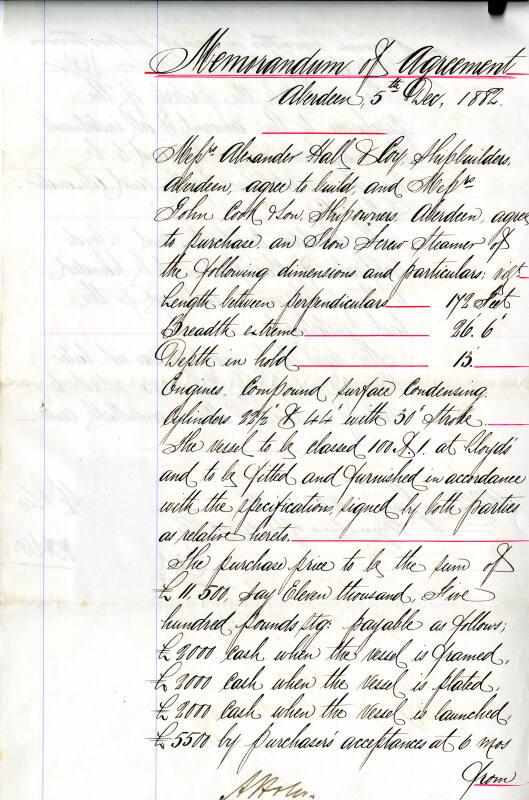 Memorandum of Agreement
Aberdeen, 5th Dec, 1882.
Messrs Alexander Hall & Coy, Shipbuilders,
Aberdeen, agree to build, and Messrs
John Cook & Son, Shipowners, Aberdeen, agree
to purchase an Iron Screw Steamer of
the following dimensions and particulars; vizt
Length between perpendiculars 172 Feet
Breadth extreme 26' 6"
Depth in hold 13'
Engines. Compound Surface Condensing.
Cylinders & 44" with 30" Stroke.
The vessel to be classed 100 A.1. at Lloyds'
and to be fitted and furnished in accordance
with the specifications, signed by both parties
as relative hereto.
The purchase price to be the sum of
£11.500, say Eleven thousand, Five
hundred pounds, Stg: payable as follows;
£2000 cash when the vessel is framed,
£2000 cash when the vessel is plated,
£2000 cash when the vessel is launched,
£5500 by purchaser's acceptances at 6 mos
from